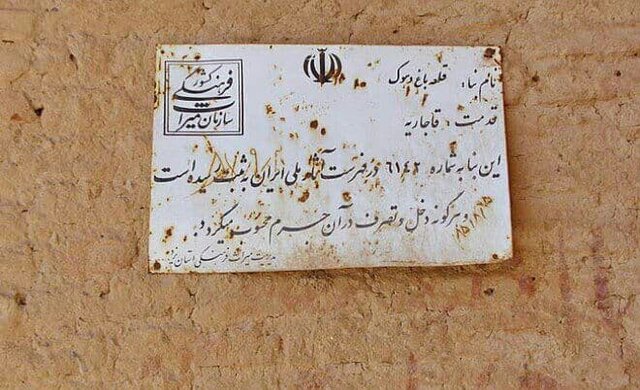 سازمان میراث
فرهنگی
کشور
نام بنا: قلعه باغ دهوک
قدمت: قاجاریه
این بنا به شماره ۶۱۴۲ در فهرست آثار ملی ایران به ثبت رسیده است
و هرگونه دخل و تصرف در آن جرم محسوب میگردد.
مدیریت میراث فرهنگی استان یزد